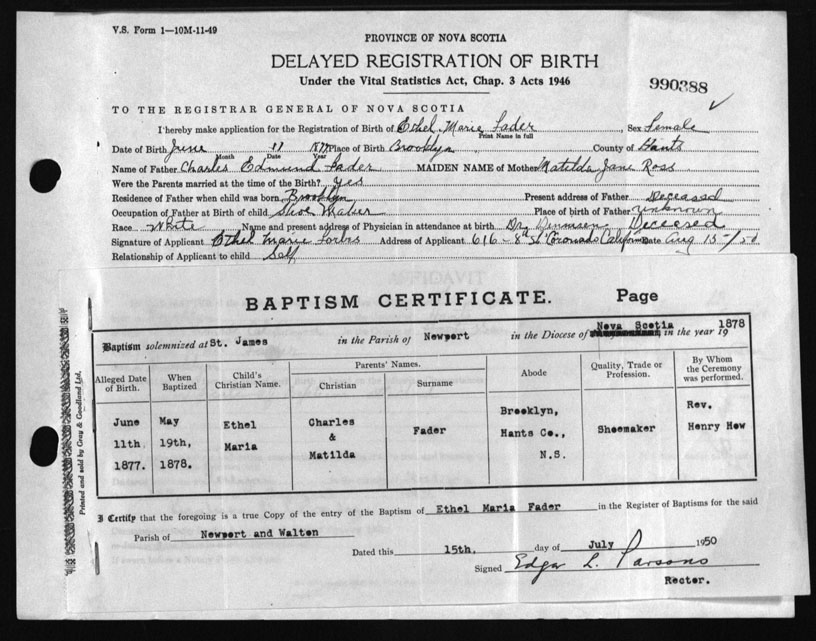 V.S. Form 1—10M-11-49
PROVINCE OF NOVA SCOTIA
DELAYED REGISTRATION OF BIRTH
Under the Vital Statistics Act, Chap. 3 Acts 1946
990388
TO THE REGISTRAR GENERAL OF NOVA SCOTIA
I hereby make application for the Registration of Birth of Ethel Marie Fader Sex Female
Print Name in full
Date of Birth June 11 1877 Place of Birth Brooklyn County of Hants
Month Date Year
Name of Father Charles Edmund Fader MAIDEN NAME of Mother Matilda Jane Ross
Were the Parents married at the time of the Birth? Yes
Residence of Father when child was born Brooklyn Present address of Father Deceased
Occupation of Father at Birth of child Shoe Maker Place of birth of Father unknown
Race White Name and present address of Physician in attendance at birth Dr. Deceased
Signature of Applicant Ethel Marie Forbes Address of Applicant 616 - 8th St Coronado California Date Aug 15-/50
Relationship of Applicant to child Self
AFFIDAVIT
BAPTISM CERTIFICATE. Page
Baptism solemnized at St. James in the Parish of Newport in the Diocese of Nova Scotia in the year 19 1878
Alleged Date of Birth.
When Baptized
Child's Christian Name.
Parents' Names.
Christian
Surname
Abode
Quality, Trade or Profession.
By Whom the Ceremony was performed.
June 11th 1877.
May 19th, 1878.
Ethel Maria
Charles & Matilda
Fader
Brooklyn, Hants Co., N.S.
Shoemaker
Rev. Henry How
I Certify that the foregoing is a true Copy of the entry of the Baptism of Ethel Maria Fader in the Register of Baptisms for the said
Parish of Newport and Walton
Dated this 15th. day of July 1950
Signed Edgar L. Parsons
Rector.
Printed and sold by Gray & Goodland Ltd.